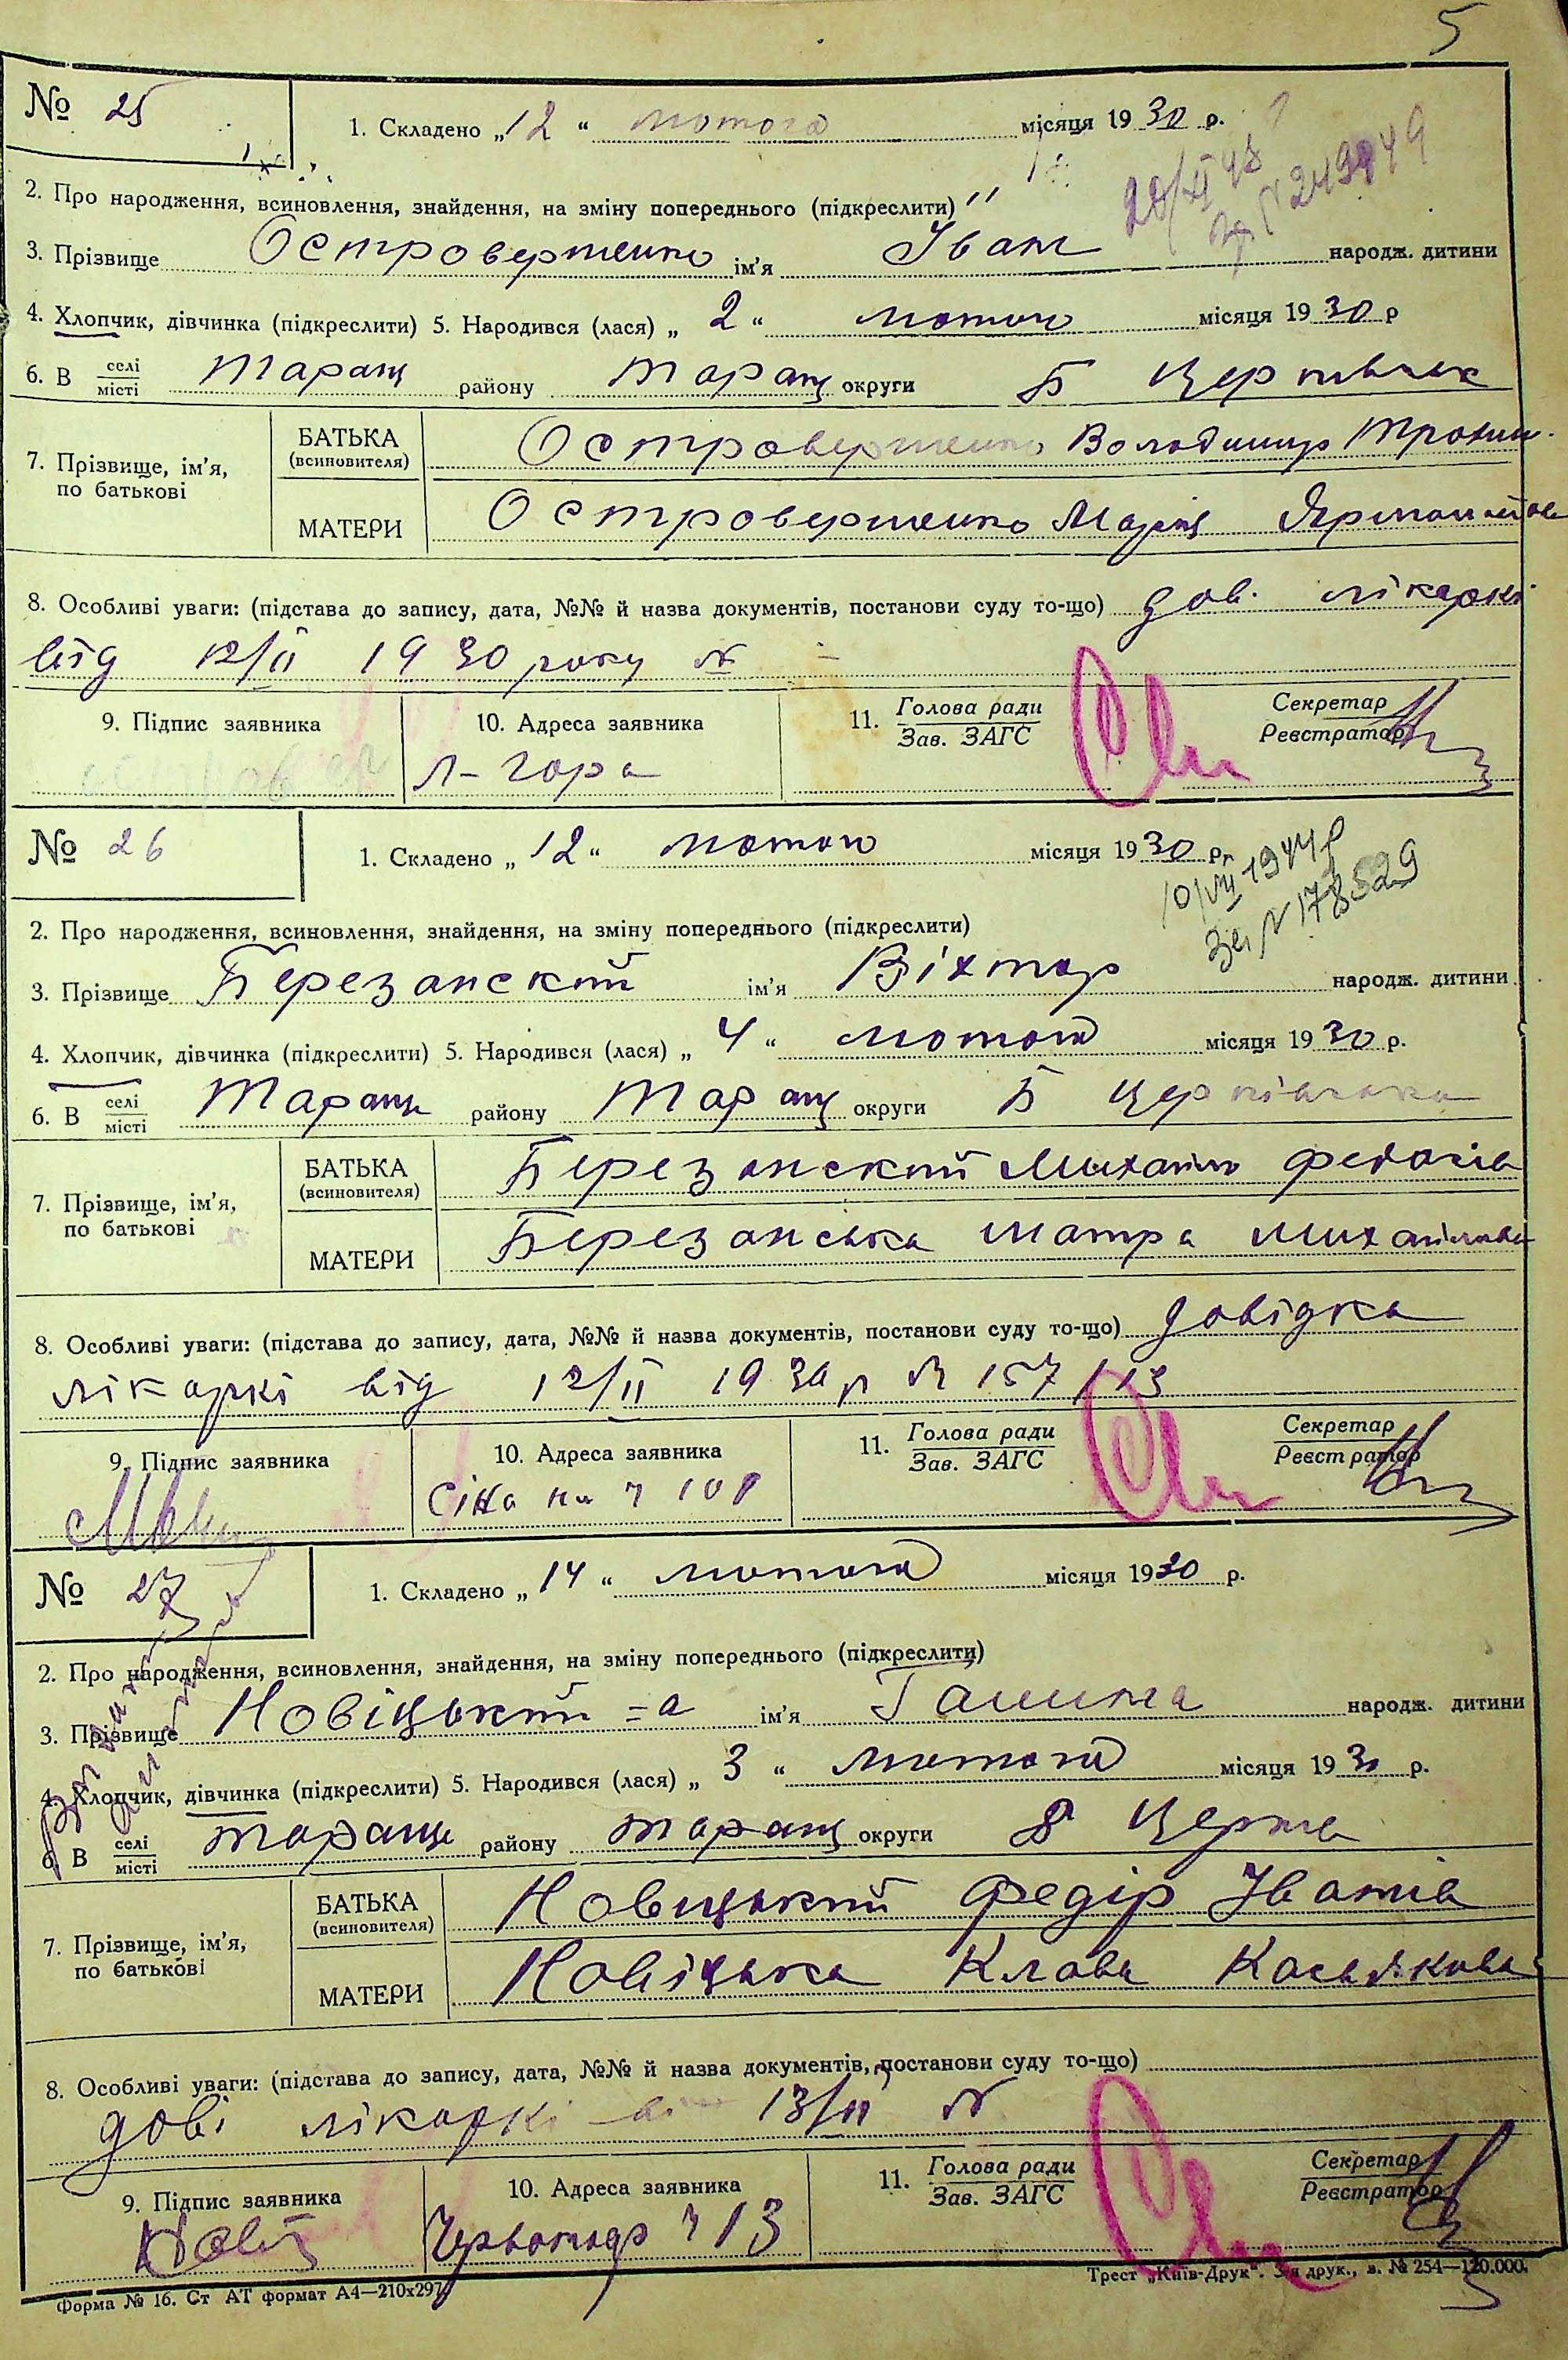 5
№ 25
1. Складено „12“ лютого місяця 1930 р.
2. Про народження, всиновлення, знайдення, на зміну попереднього (підкреслити)
3. Прізвище Островершенко ім'я Іван народж. дитини
4. Хлопчик, дівчинка (підкреслити) 5. Народився (лася) „2“ лютого місяця 1930 р
6. В селі/місті Таращ району Таращ округи Б Церківськ
7. Прізвище, ім'я, по батькові
БАТЬКА (всиновителя) Островершенко Володимир Трохим.
МАТЕРИ Островершенко Марія
8. Особливі уваги: (підстава до запису, дата, №№ й назва документів, постанови суду то-що) дов. лікаркі
від 12/II 1930 року №
9. Підпис заявника
10. Адреса заявника
Л-Гора
11. Голова ради/Зав. ЗАГС
Секретар/Реєстратор
№ 26
1. Складено „12“ лютого місяця 1930 р.
10/VII 1944 р
№ 178529
2. Про народження, всиновлення, знайдення, на зміну попереднього (підкреслити)
3. Прізвище Березанский ім'я Віктор народж. дитини
4. Хлопчик, дівчинка (підкреслити) 5. Народився (лася) „4“ лютого місяця 1930 р.
6. В селі/місті Таращ району Таращ округи Б Церківська
7. Прізвище, ім'я, по батькові
БАТЬКА (всиновителя) Березанский Михайло
МАТЕРИ Березанська Михайлова
8. Особливі уваги: (підстава до запису, дата, №№ й назва документів, постанови суду то-що) довідка
лікаркі від 12/II 1930 р № 157/13
9. Підпис заявника
10. Адреса заявника
11. Голова ради/Зав. ЗАГС
Секретар/Реєстратор
№ 27
1. Складено „14“ лютого місяця 1930 р.
2. Про народження, всиновлення, знайдення, на зміну попереднього (підкреслити)
3. Прізвище Новіцький =а ім'я Галина народж. дитини
4. Хлопчик, дівчинка (підкреслити) 5. Народився (лася) „3“ лютого місяця 1930 р.
6. В селі/місті Тараще району Таращ округи Б Церкв
7. Прізвище, ім'я, по батькові
БАТЬКА (всиновителя) Новицький Федір Іванів
МАТЕРИ Новіцька Клава Касьянова
8. Особливі уваги: (підстава до запису, дата, №№ й назва документів, постанови суду то-що)
дові лікаркі від 13/II №
9. Підпис заявника
Новіц
10. Адреса заявника
ч 13
11. Голова ради/Зав. ЗАГС
Секретар/Реєстратор
Форма № 16. Ст АТ формат А4—210x297
Трест „Київ-Друк“. 3-я друк., з. № 254—120.000.